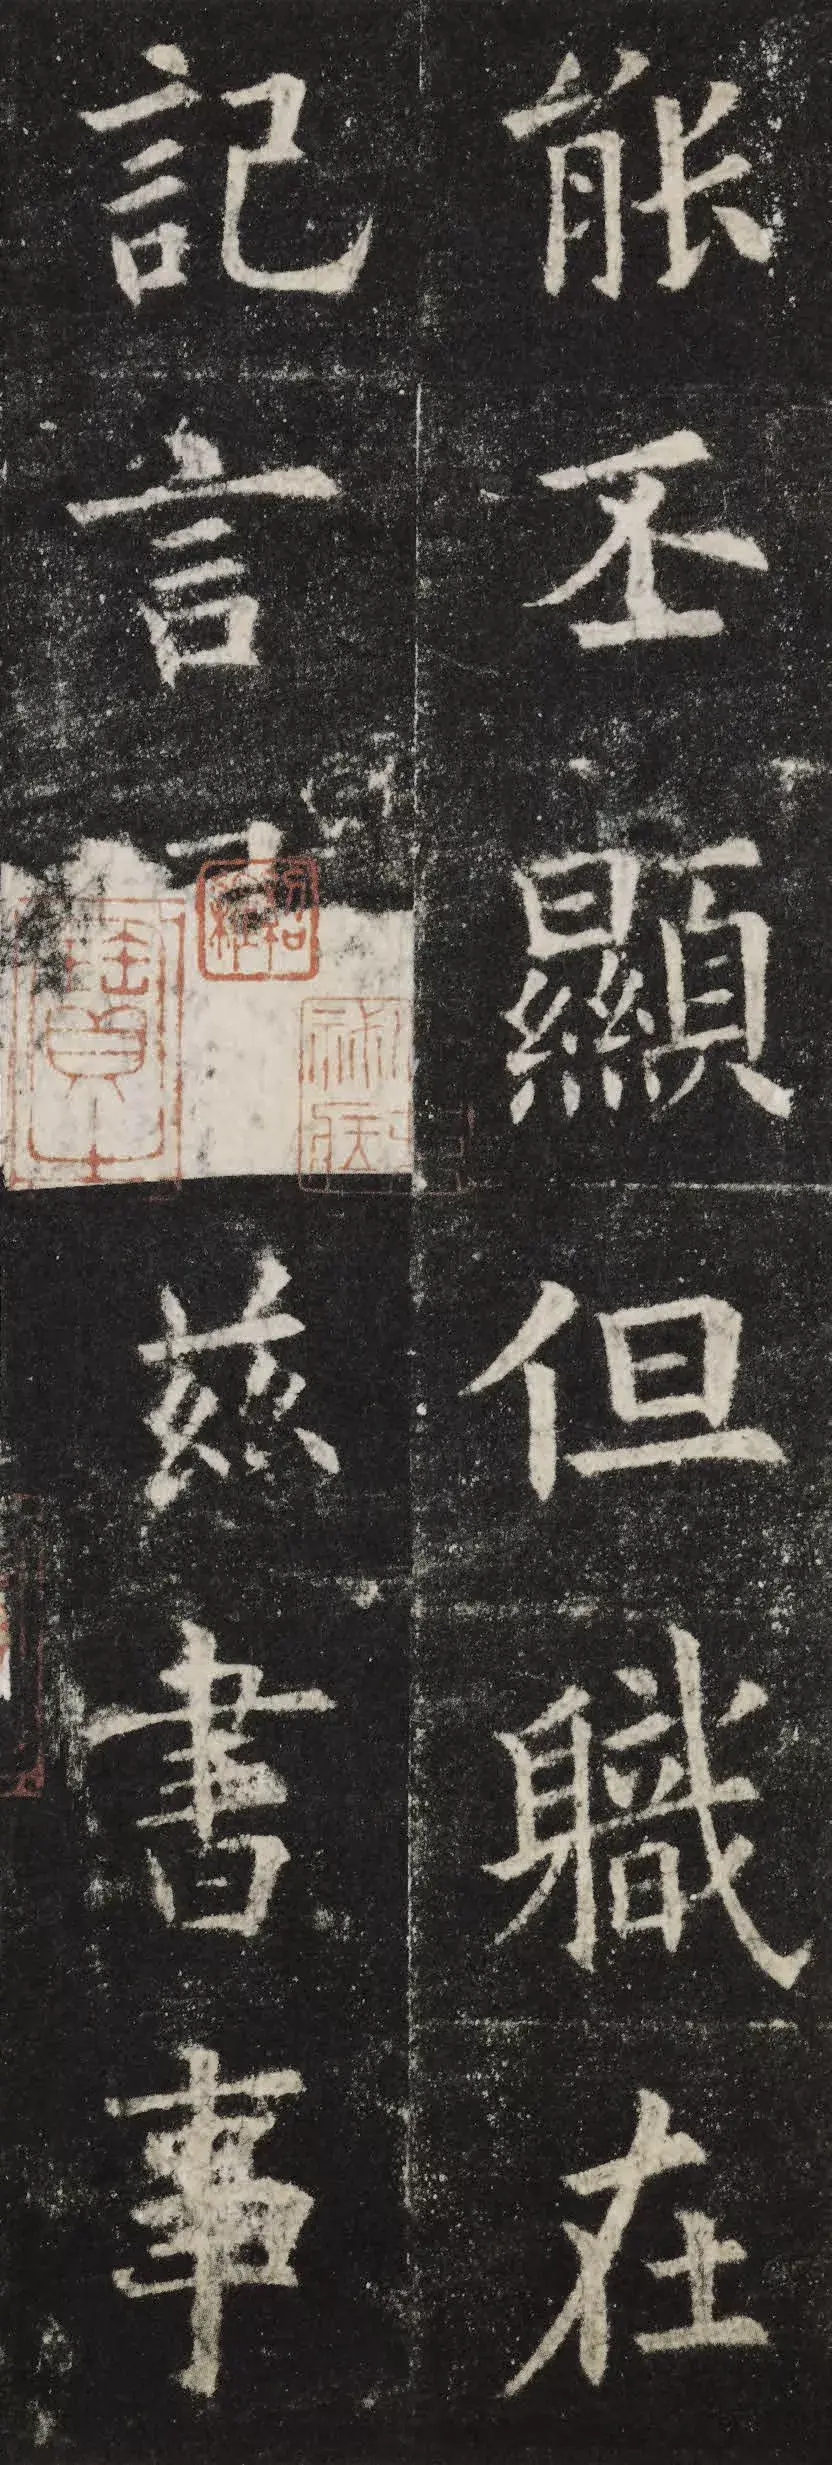 能丕顯但職在
記言兹書事